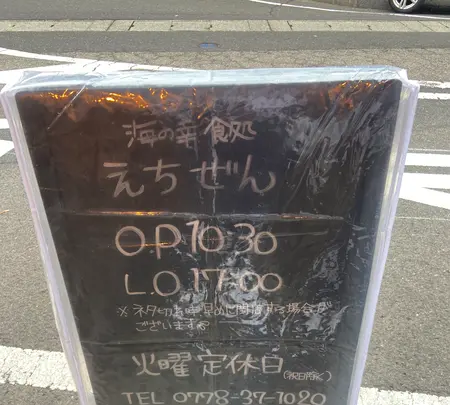 海の幸 食処
えちぜん
O.P 10:30
L.O 17:00
※ネタ切れ早めに閉店する場合が
ございます。
火曜定休日(祝日除く)
TEL 0778-37-1020